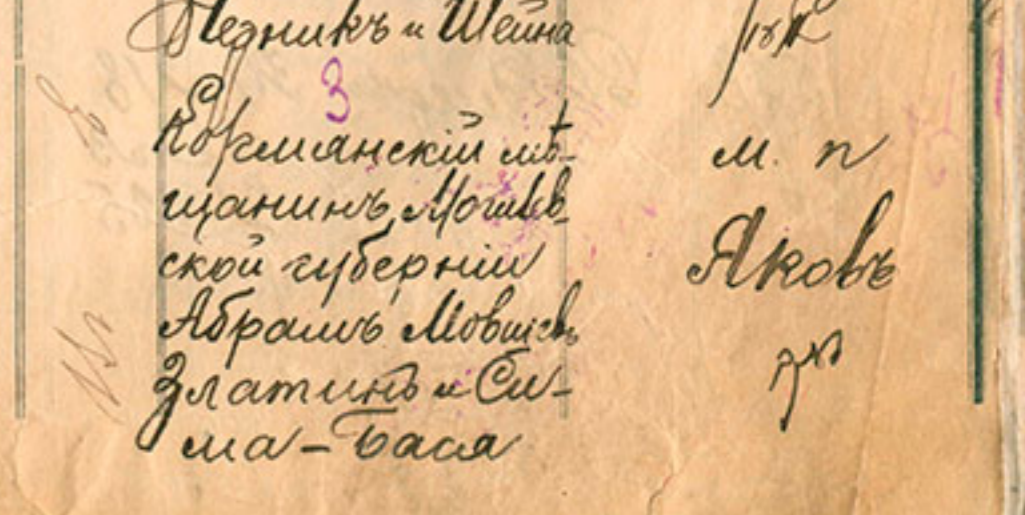 Резникъ и Шейна
3
Кормянскій мѣ-
щанинъ, Могилев-
ской губерніи
Абрамъ Мовшевъ
Златинъ и Си-
ма-Бася
м. п
Яковъ
יעקב